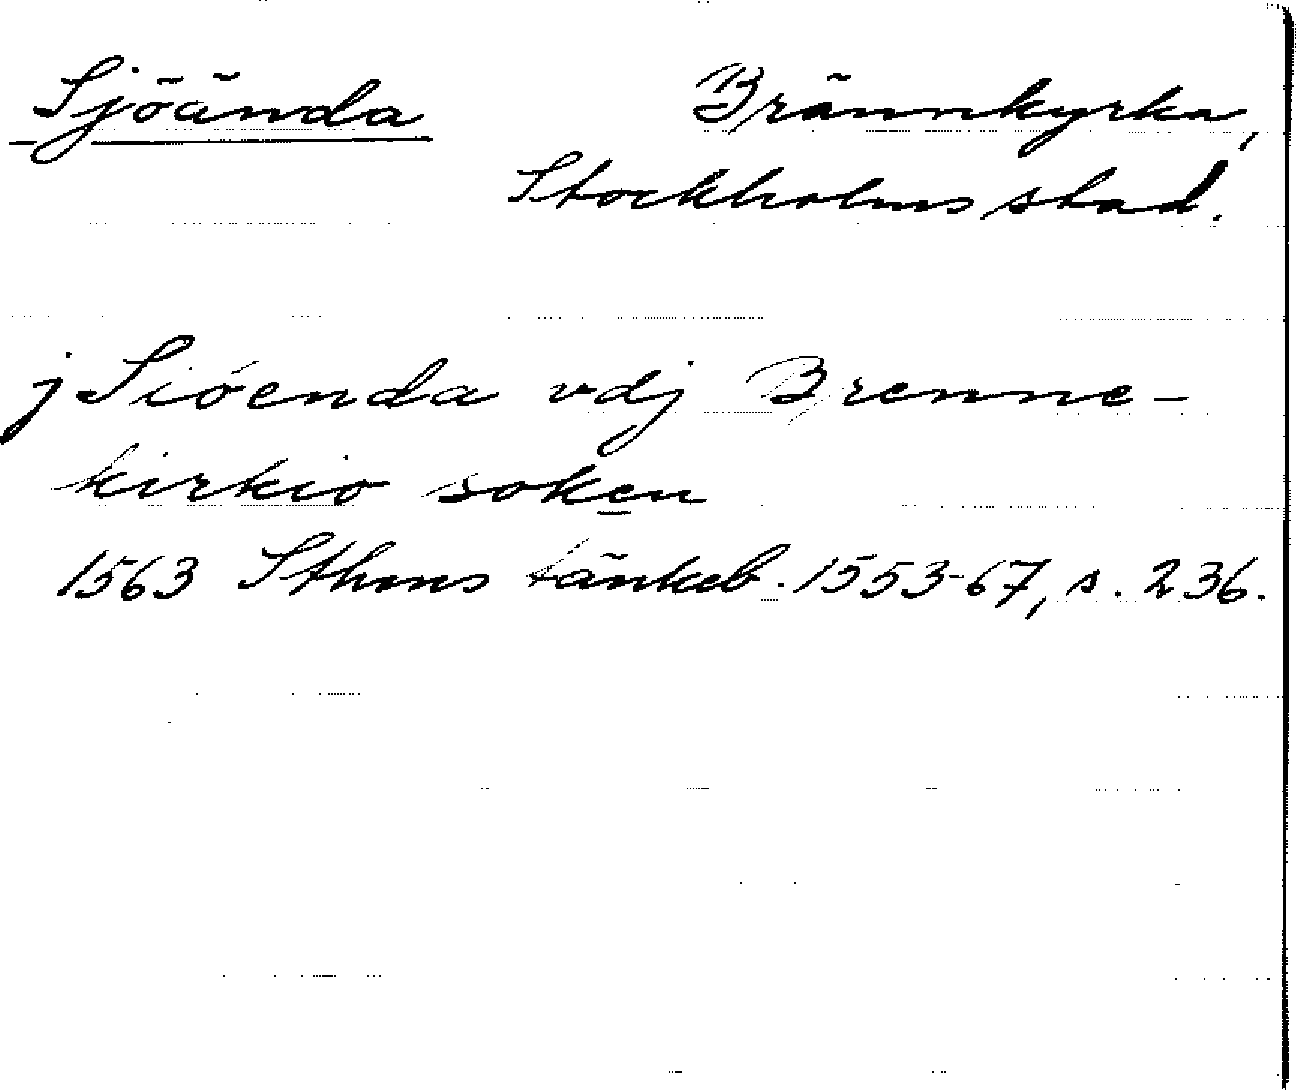 Sjöända Brännkyrka,
Stockholms stad.
j Siöenda vdj Brenne-
kirkio soken
1563 Sthms tänkeb. 1553-67, s. 236.